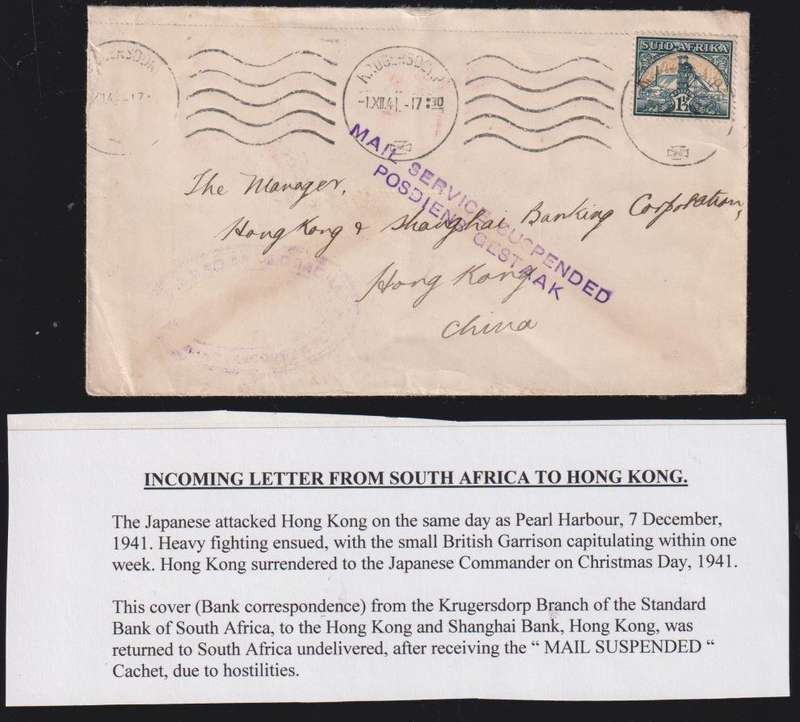 SUID-AFRIKA
1½D
KRUGERSDORP
-1.XII.41.-17
MAIL SERVICE SUSPENDED
POSDIENS GESTAAK
The Manager,
Hong Kong & Shanghai Banking Corporation,
Hong Kong
China
INCOMING LETTER FROM SOUTH AFRICA TO HONG KONG.
The Japanese attacked Hong Kong on the same day as Pearl Harbour, 7 December,
1941. Heavy fighting ensued, with the small British Garrison capitulating within one
week. Hong Kong surrendered to the Japanese Commander on Christmas Day, 1941.
This cover (Bank correspondence) from the Krugersdorp Branch of the Standard
Bank of South Africa, to the Hong Kong and Shanghai Bank, Hong Kong, was
returned to South Africa undelivered, after receiving the “ MAIL SUSPENDED “
Cachet, due to hostilities.